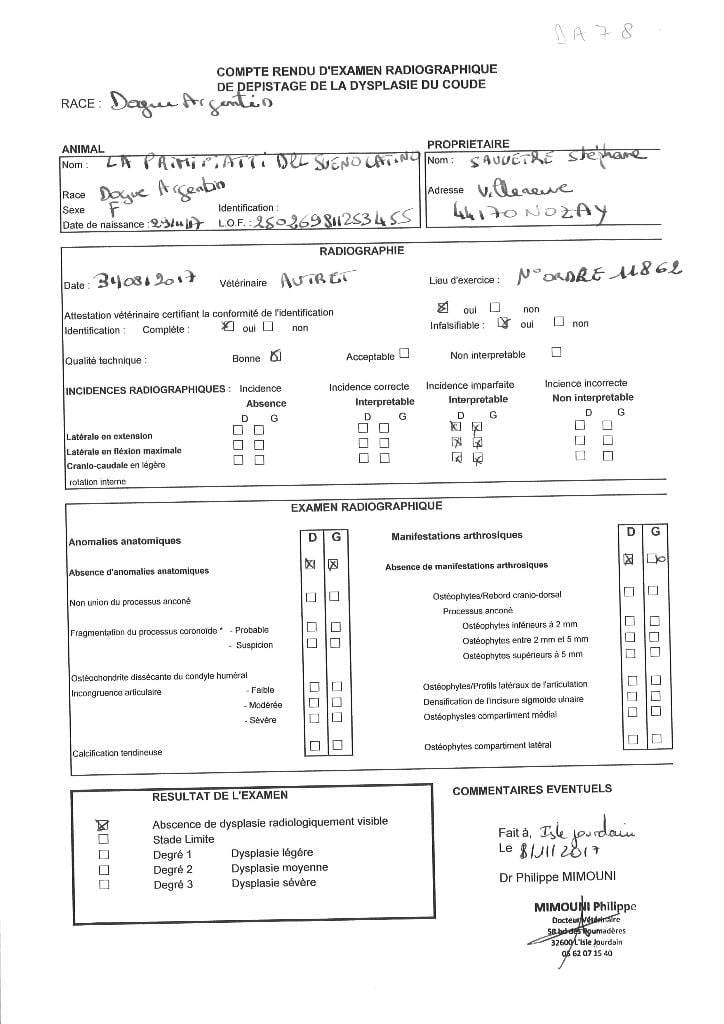 DA78
COMPTE RENDU D'EXAMEN RADIOGRAPHIQUE
DE DEPISTAGE DE LA DYSPLASIE DU COUDE
RACE : Dogue Argentin
ANIMAL
Nom : LA PRIMIPIATTI DEL SUENO LATINO
Race Dogue Argentin
Sexe F Identification :
Date de naissance : L.O.F. : 250269811253455
PROPRIETAIRE
Nom : SAUVETRE Stéphane
Adresse Villeneuve
44170 NOZAY
RADIOGRAPHIE
Date : Vétérinaire AUTRET Lieu d'exercice : N° ORDRE 11862
Attestation vétérinaire certifiant la conformité de l'identification oui non
Identification : Complète : oui non Infalsifiable : oui non
Qualité technique : Bonne Acceptable Non interpretable
INCIDENCES RADIOGRAPHIQUES : Incidence Incidence correcte Incidence imparfaite Incience incorrecte
Absence Interpretable Interpretable Non interpretable
D G D G D G D G
Latérale en extension
Latérale en fléxion maximale
Cranio-caudale en légère
rotation interne
EXAMEN RADIOGRAPHIQUE
Anomalies anatomiques D G
Absence d'anomalies anatomiques
Non union du processus anconé
Fragmentation du processus coronoïde * - Probable
- Suspicion
Ostéochondrite dissécante du condyle huméral
Incongruence articulaire - Faible
- Modérée
- Sévère
Calcification tendineuse
Manifestations arthrosiques D G
Absence de manifestations arthrosiques
Ostéophytes/Rebord cranio-dorsal
Processus anconé
Ostéophytes inférieurs à 2 mm
Ostéophytes entre 2 mm et 5 mm
Ostéophytes supérieurs à 5 mm
Ostéophytes/Profils latéraux de l'articulation
Densification de l'incisure sigmoïde ulnaire
Ostéophystes compartiment médial
Ostéophytes compartiment latéral
RESULTAT DE L'EXAMEN
Abscence de dysplasie radiologiquement visible
Stade Limite
Degré 1 Dysplasie légére
Degré 2 Dysplasie moyenne
Degré 3 Dysplasie sévère
COMMENTAIRES EVENTUELS
Fait à, Isle Jourdain
Le 8/11/2017
Dr Philippe MIMOUNI
MIMOUNI Philippe
Docteur Vétérinaire
58 bd des Poumadères
32600 L'Isle Jourdain
05 62 07 15 40